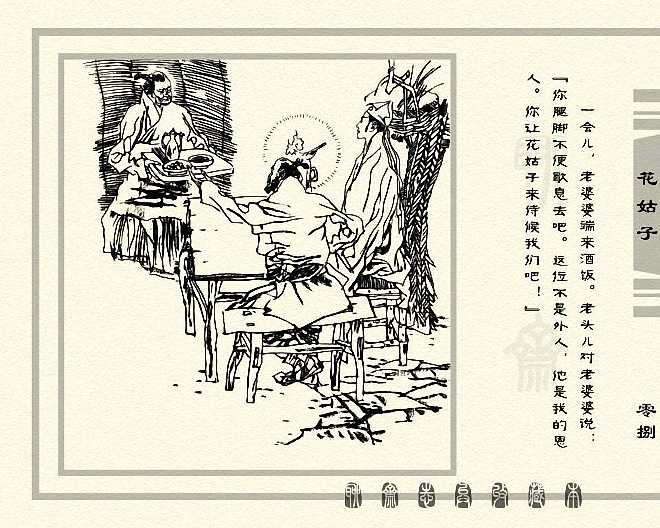 一会儿，老婆婆端来酒饭。老头儿对老婆婆说：
“你腿脚不便歇息去吧。这位不是外人，他是我的恩
人。你让花姑子来侍候我们吧！”
花姑子
零捌